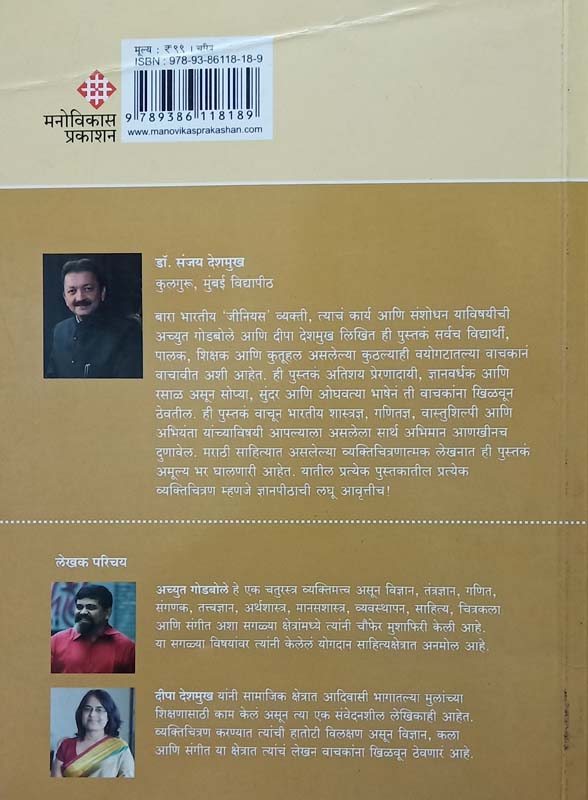 मूल्य : ₹ ९९ । चरित्र
ISBN : 978-93-86118-18-9
9 789386 118189
www.manovikasprakashan.com
मनोविकास
प्रकाशन
डॉ. संजय देशमुख
कुलगुरू, मुंबई विद्यापीठ
बारा भारतीय ‘जीनियस’ व्यक्ती, त्याचं कार्य आणि संशोधन याविषयीची
अच्युत गोडबोले आणि दीपा देशमुख लिखित ही पुस्तकं सर्वच विद्यार्थी,
पालक, शिक्षक आणि कुतूहल असलेल्या कुठल्याही वयोगटातल्या वाचकानं
वाचावीत अशी आहेत. ही पुस्तकं अतिशय प्रेरणादायी, ज्ञानवर्धक आणि
रसाळ असून सोप्या, सुंदर आणि ओघवत्या भाषेनं ती वाचकांना खिळवून
ठेवतील. ही पुस्तकं वाचून भारतीय शास्त्रज्ञ, गणितज्ञ, वास्तुशिल्पी आणि
अभियंता यांच्याविषयी आपल्याला असलेला सार्थ अभिमान आणखीनच
दुणावेल. मराठी साहित्यात असलेल्या व्यक्तिचित्रणात्मक लेखनात ही पुस्तकं
अमूल्य भर घालणारी आहेत. यातील प्रत्येक पुस्तकातील प्रत्येक
व्यक्तिचित्रण म्हणजे ज्ञानपीठाची लघू आवृत्तीच!
लेखक परिचय
अच्युत गोडबोले हे एक चतुरस्त्र व्यक्तिमत्त्व असून विज्ञान, तंत्रज्ञान, गणित,
संगणक, तत्त्वज्ञान, अर्थशास्त्र, मानसशास्त्र, व्यवस्थापन, साहित्य, चित्रकला
आणि संगीत अशा सगळ्या क्षेत्रांमध्ये त्यांनी चौफेर मुशाफिरी केली आहे.
या सगळ्या विषयांवर त्यांनी केलेलं योगदान साहित्यक्षेत्रात अनमोल आहे.
दीपा देशमुख यांनी सामाजिक क्षेत्रात आदिवासी भागातल्या मुलांच्या
शिक्षणासाठी काम केलं असून त्या एक संवेदनशील लेखिकाही आहेत.
व्यक्तिचित्रण करण्यात त्यांची हातोटी विलक्षण असून विज्ञान, कला
आणि संगीत या क्षेत्रात त्यांचं लेखन वाचकांना खिळवून ठेवणारं आहे.